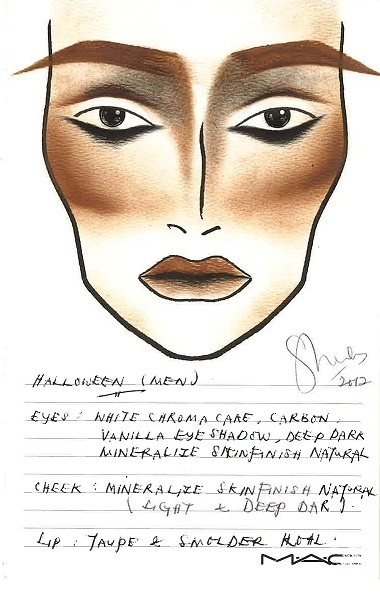 2012
HALLOWEEN (MEN)
EYES : WHITE CHROMA CAKE, CARBON,
VANILLA EYE SHADOW, DEEP DARK
MINERALIZE SKINFINISH NATURAL
CHEEK : MINERALIZE SKINFINISH NATURAL
(LIGHT & DEEP DARK).
LIP : TAUPE & SMOLDER KOHL.
MAC